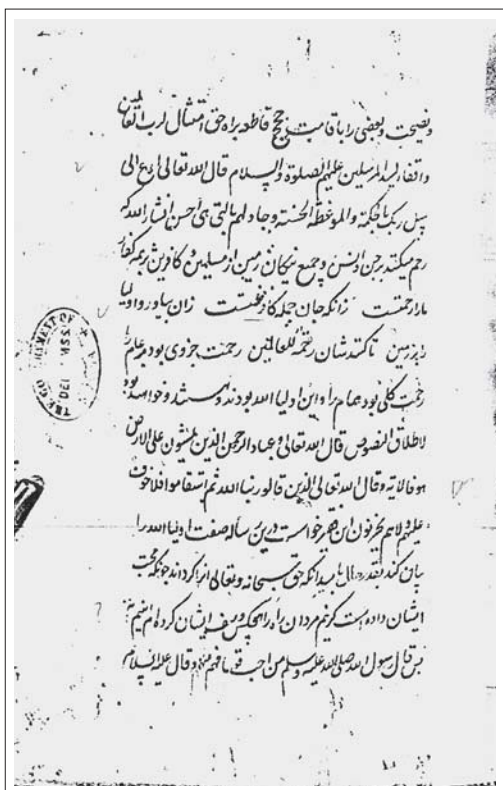 ونصیحت و بعضی را باقامت حجج قاطعه براه حق امتثال لرب العالمین
واقتفاء لسید المرسلین علیهم الصلوة والسلام قال الله تعالی ادع الی
سبیل ربک بالحکمة والموعظة الحسنة وجادلهم بالتی هی احسن انشاء الله که
رحم میکنند بر جن و انس و جمیع نیکان زمین از مسلمین و کافرین بر همه کفار
مارا رحمتست زانکه جان جمله کافر نعمتست زان بیاورد اولیا
را بر زمین تا کندشان رحمة للعالمین رحمت جزوی بود مر عام را
رحمت کلی بود همام را و این اولیاء الله بودند و هستند و خواهند بود
لاطلاق النصوص قال الله تعالی وعباد الرحمن الذین یمشون علی الارض
هونا الایه وقال الله تعالی الذین قالوا ربنا الله ثم استقاموا فلا خوف
علیهم ولا هم یحزنون این فقیر خواست درین رساله صفت اولیاء الله را
بیان کند بقدر حال بدانکه حق سبحانه وتعالی انرا کرداند چونکه محبت
ایشان داده است کرنیم مردان راه را هیچکس وصف ایشان کرده ام اینم بس
بس قال رسول الله صلی الله علیه وسلم من احب قوما فهو منهم وقال علیه السلام
MSS